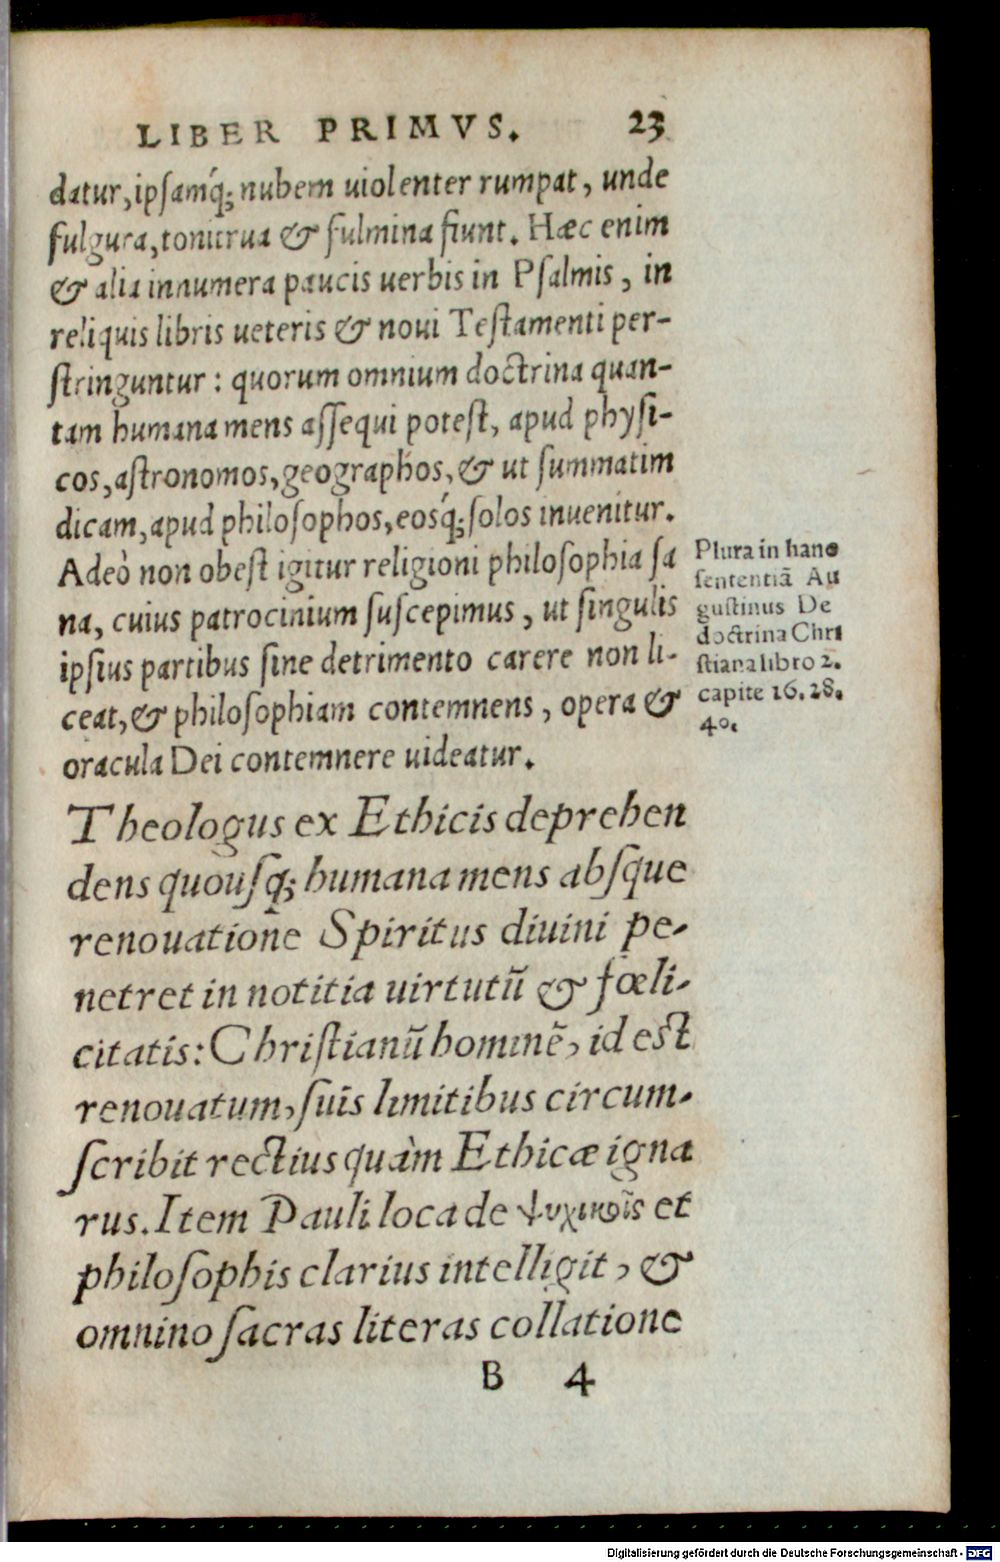 LIBER PRIMVS. 23
datur, ipsamq́; nubem uiolenter rumpat, unde
fulgura, tonitrua & fulmina fiunt. Hæc enim
& alia innumera paucis uerbis in Psalmis, in
reliquis libris ueteris & noui Testamenti per-
stringuntur: quorum omnium doctrina quan-
tam humana mens assequi potest, apud physi-
cos, astronomos, geographos, & ut summatim
dicam, apud philosophos, eosq́; solos inuenitur.
Adeò non obest igitur religioni philosophia sa
na, cuius patrocinium suscepimus, ut singulis
ipsius partibus sine detrimento carere non li-
ceat, & philosophiam contemnens, opera &
oracula Dei contemnere uideatur.
Plura in hanc
sententiā Au
gustinus De
doctrina Chri
stiana libro 2.
capite 16. 28.
40.
Theologus ex Ethicis deprehen
dens quousq; humana mens absque
renouatione Spiritus diuini pe-
netret in notitia uirtutū & fœli-
citatis: Christianū hominē, id est
renouatum, suis limitibus circum-
scribit rectius quàm Ethicæ igna
rus. Item Pauli loca de ψυχικοῖς et
philosophis clarius intelligit, &
omnino sacras literas collatione
B 4
Digitalisierung gefördert durch die Deutsche Forschungsgemeinschaft - DFG